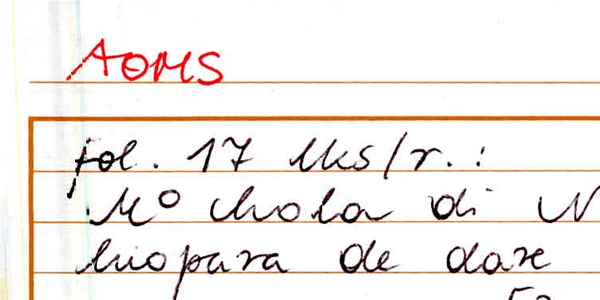 AOMS
fol. 17 lks/r.:
Mº chola di N
hiopara de dare